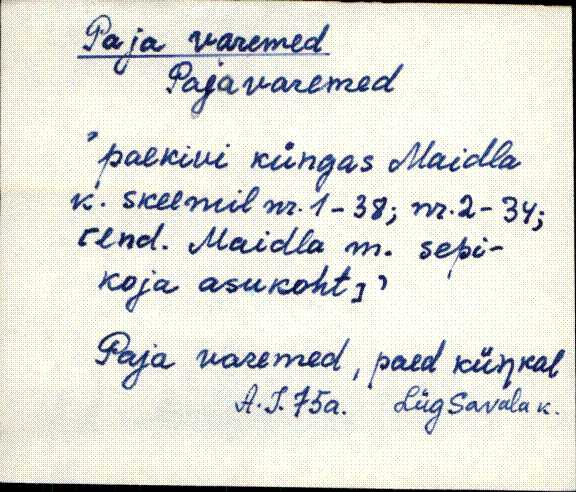 Paja varemed
Pajavaremed
'paekivi küngas Maidla
k. skeemil nr. 1-38; nr. 2-34;
[end. Maidla m. sepi-
koja asukoht]'
Paja varemed, paed küŋkal
A.J. 75a. Lüg Savala k.